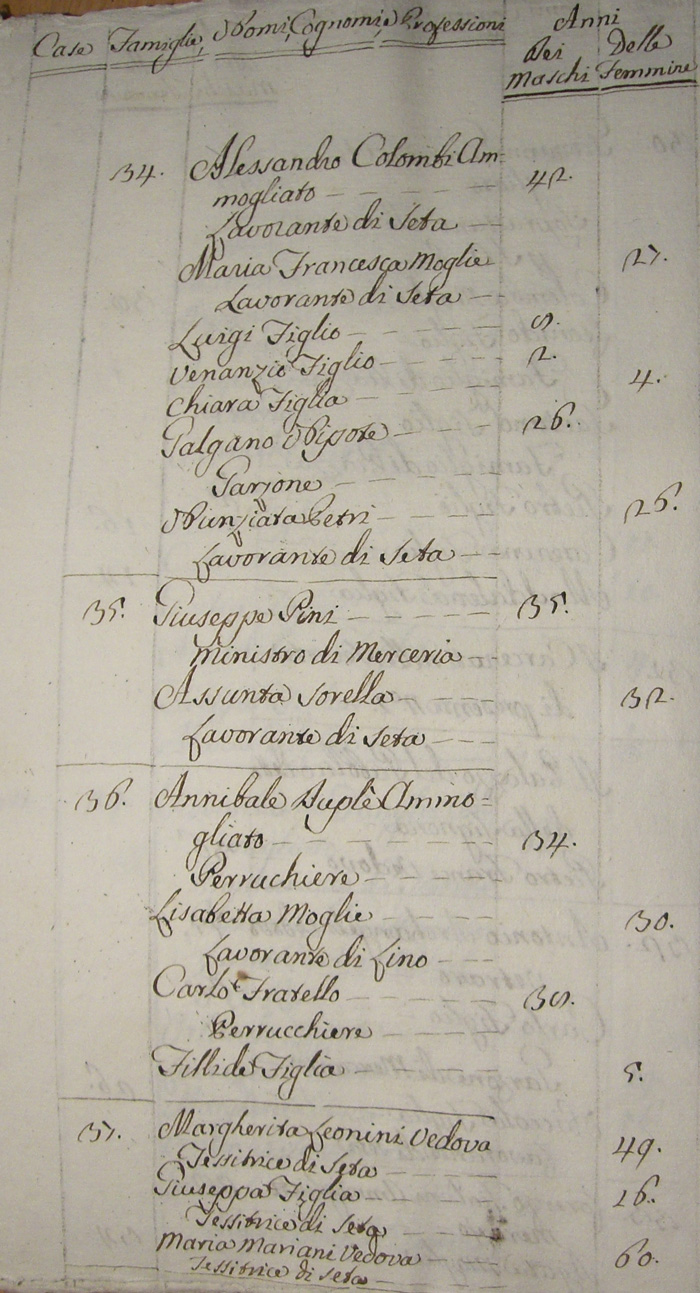 Case Famiglie, Nomi, Cognomi, e Professioni Anni
Dei Delle
Maschi Femmine
34. Alessandro Colombi Am=
mogliato 42.
Lavorante di Seta
Maria Francesca Moglie 27.
Lavorante di Seta
Luigi Figlio
Venanzio Figlio 2.
Chiara Figlia 4.
Galgano Nipote 26.
Garzone
Nunziata Petri 25.
Lavorante di Seta
35. Giuseppe Pini 35.
Ministro di Merceria
Assunta Sorella 32.
Lavorante di Seta
36. Annibale Ammo=
gliato 34.
Perruchiere
Lisabetta Moglie 30.
Lavorante di Lino
Carlo Fratello
Perrucchiere
Fillide Figlia 5.
37. Margherita Leonini Vedova 49.
Tessitrice di Seta
Giuseppa Figlia 26.
Tessitrice di Seta
Maria Mariani Vedova 60.
Tessitrice di Seta